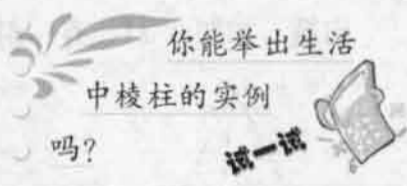 你能举出生活
中棱柱的实例
吗?
试一试